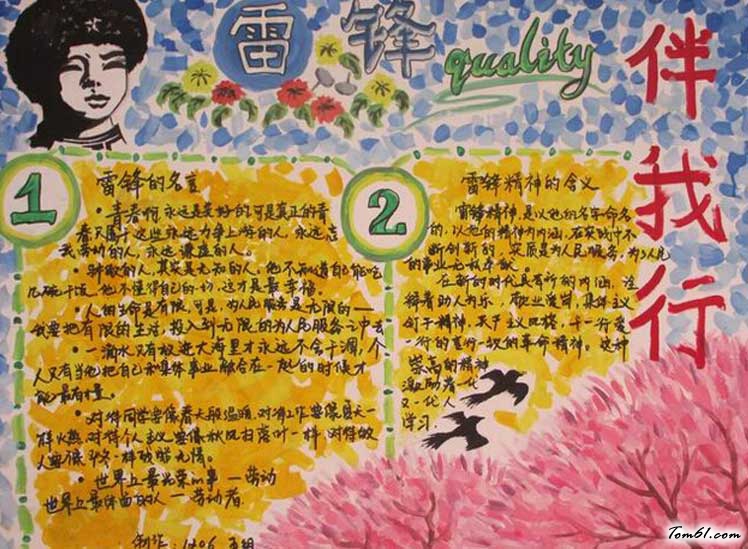 雷锋
quality
伴我行
1
雷锋的名言
• 青春啊,永远是美好的,可是真正的青
春只属于这些永远力争上游的人,永远忘
我劳动的人,永远谦虚的人。
• 骄傲的人,其实是无知的人,他不知道自己能吃
几碗干饭,他不懂得自己的
• 人的生命是有限,可是,为人民服务是无限的——
我要把有限的生活,投入到无限的为人民服务之中去
• 一滴水只有放进大海里才永远不会干涸,个
人只有当他把自己和集体事业融合在一起的时候才
能最有力量。
• 对待同学要像春天般温暖,对待工作要像夏天一
样火热,对待个人主义要像秋风扫落叶一样,对待敌
人要像严冬一样残酷无情。
• 世界上最光荣的事—劳动
世界上最体面的人—劳动者.
制作:1206
2
雷锋精神的含义
雷锋精神,是以他的名字命名
的,以他的精神为内涵,在实践中不
断创新的,实质是为人民服务,为人民
的事业无私奉献。
在新的时代具有新的内涵,诠
释着助人为乐,敬业爱岗,集体主义
创业精神,
一行的
崇高的精神
激励着一代
又一代人
学习.
Tom61.com